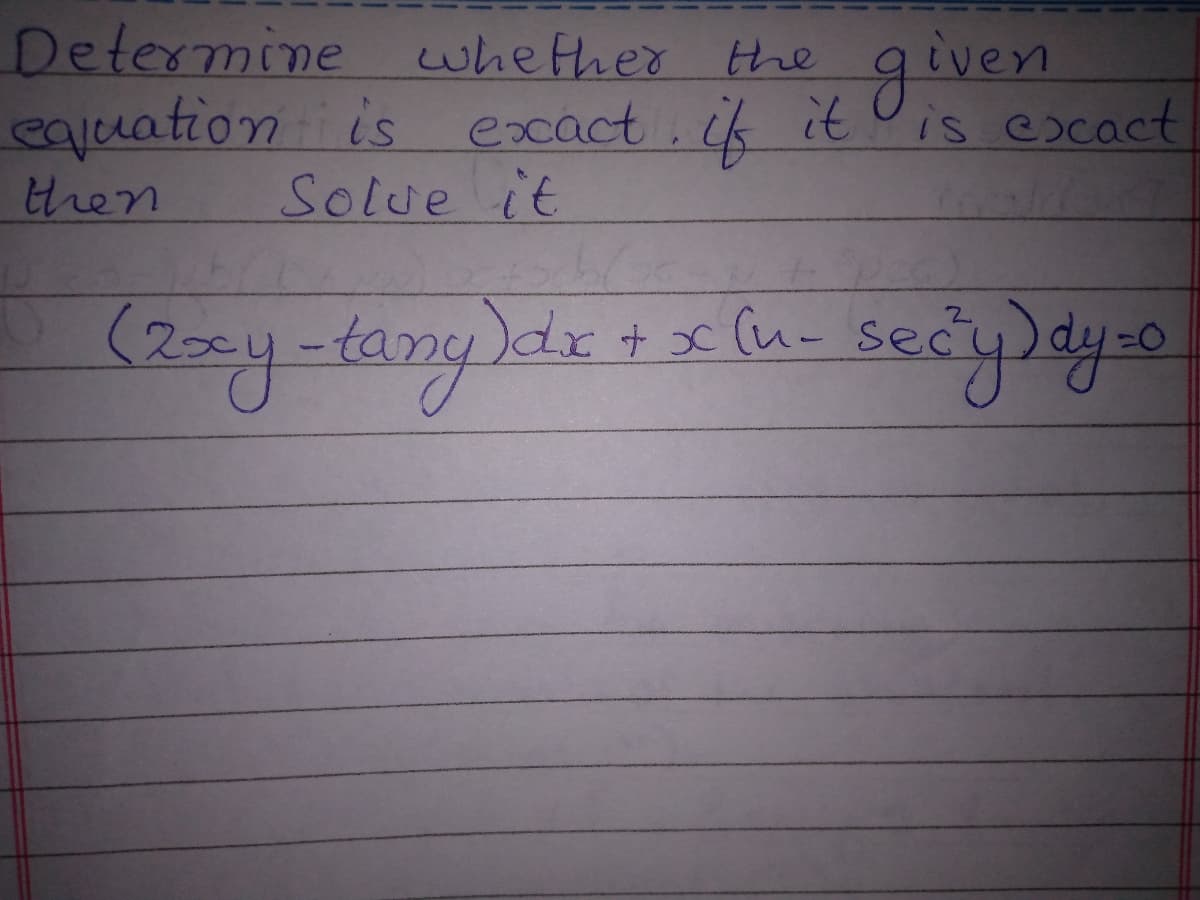 Determine whether the given
equation is exact. if it is exact
then Solve it
(2xy-tany)dx + x(u- sec²y)dy=0